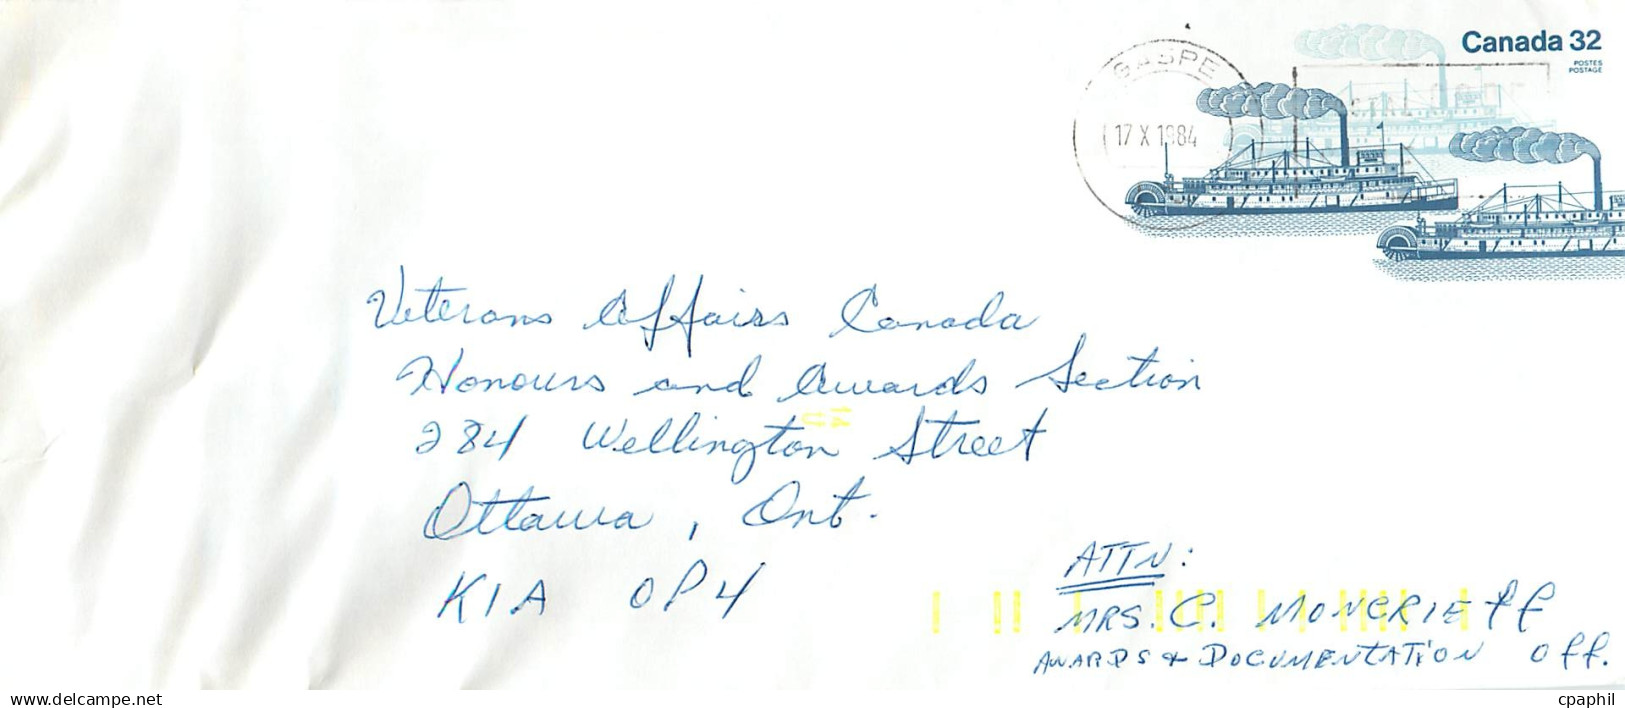 Canada 32
POSTES
POSTAGE
GASPE
17 X 1984
Veterans Affairs Canada
Honours and Awards Section
284 Wellington Street
Ottawa, Ont.
K1A 0P4
ATTN:
MRS. C. MONCRIEFF
AWARDS & DOCUMENTATION Off.
cpaphil